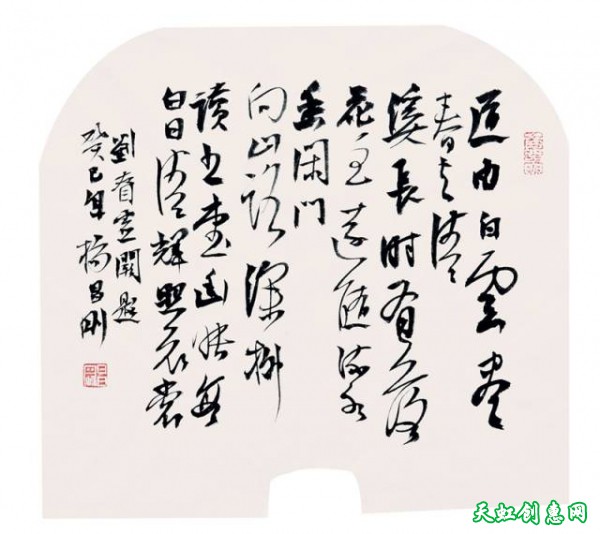 道由白雲盡
春与清
溪長時有落
花至遠隨流水
香闲门
向山路深柳
讀書堂幽映每
白日清輝照衣裳
劉眘虛闕題
癸巳年杨昌刚
天虹创惠网